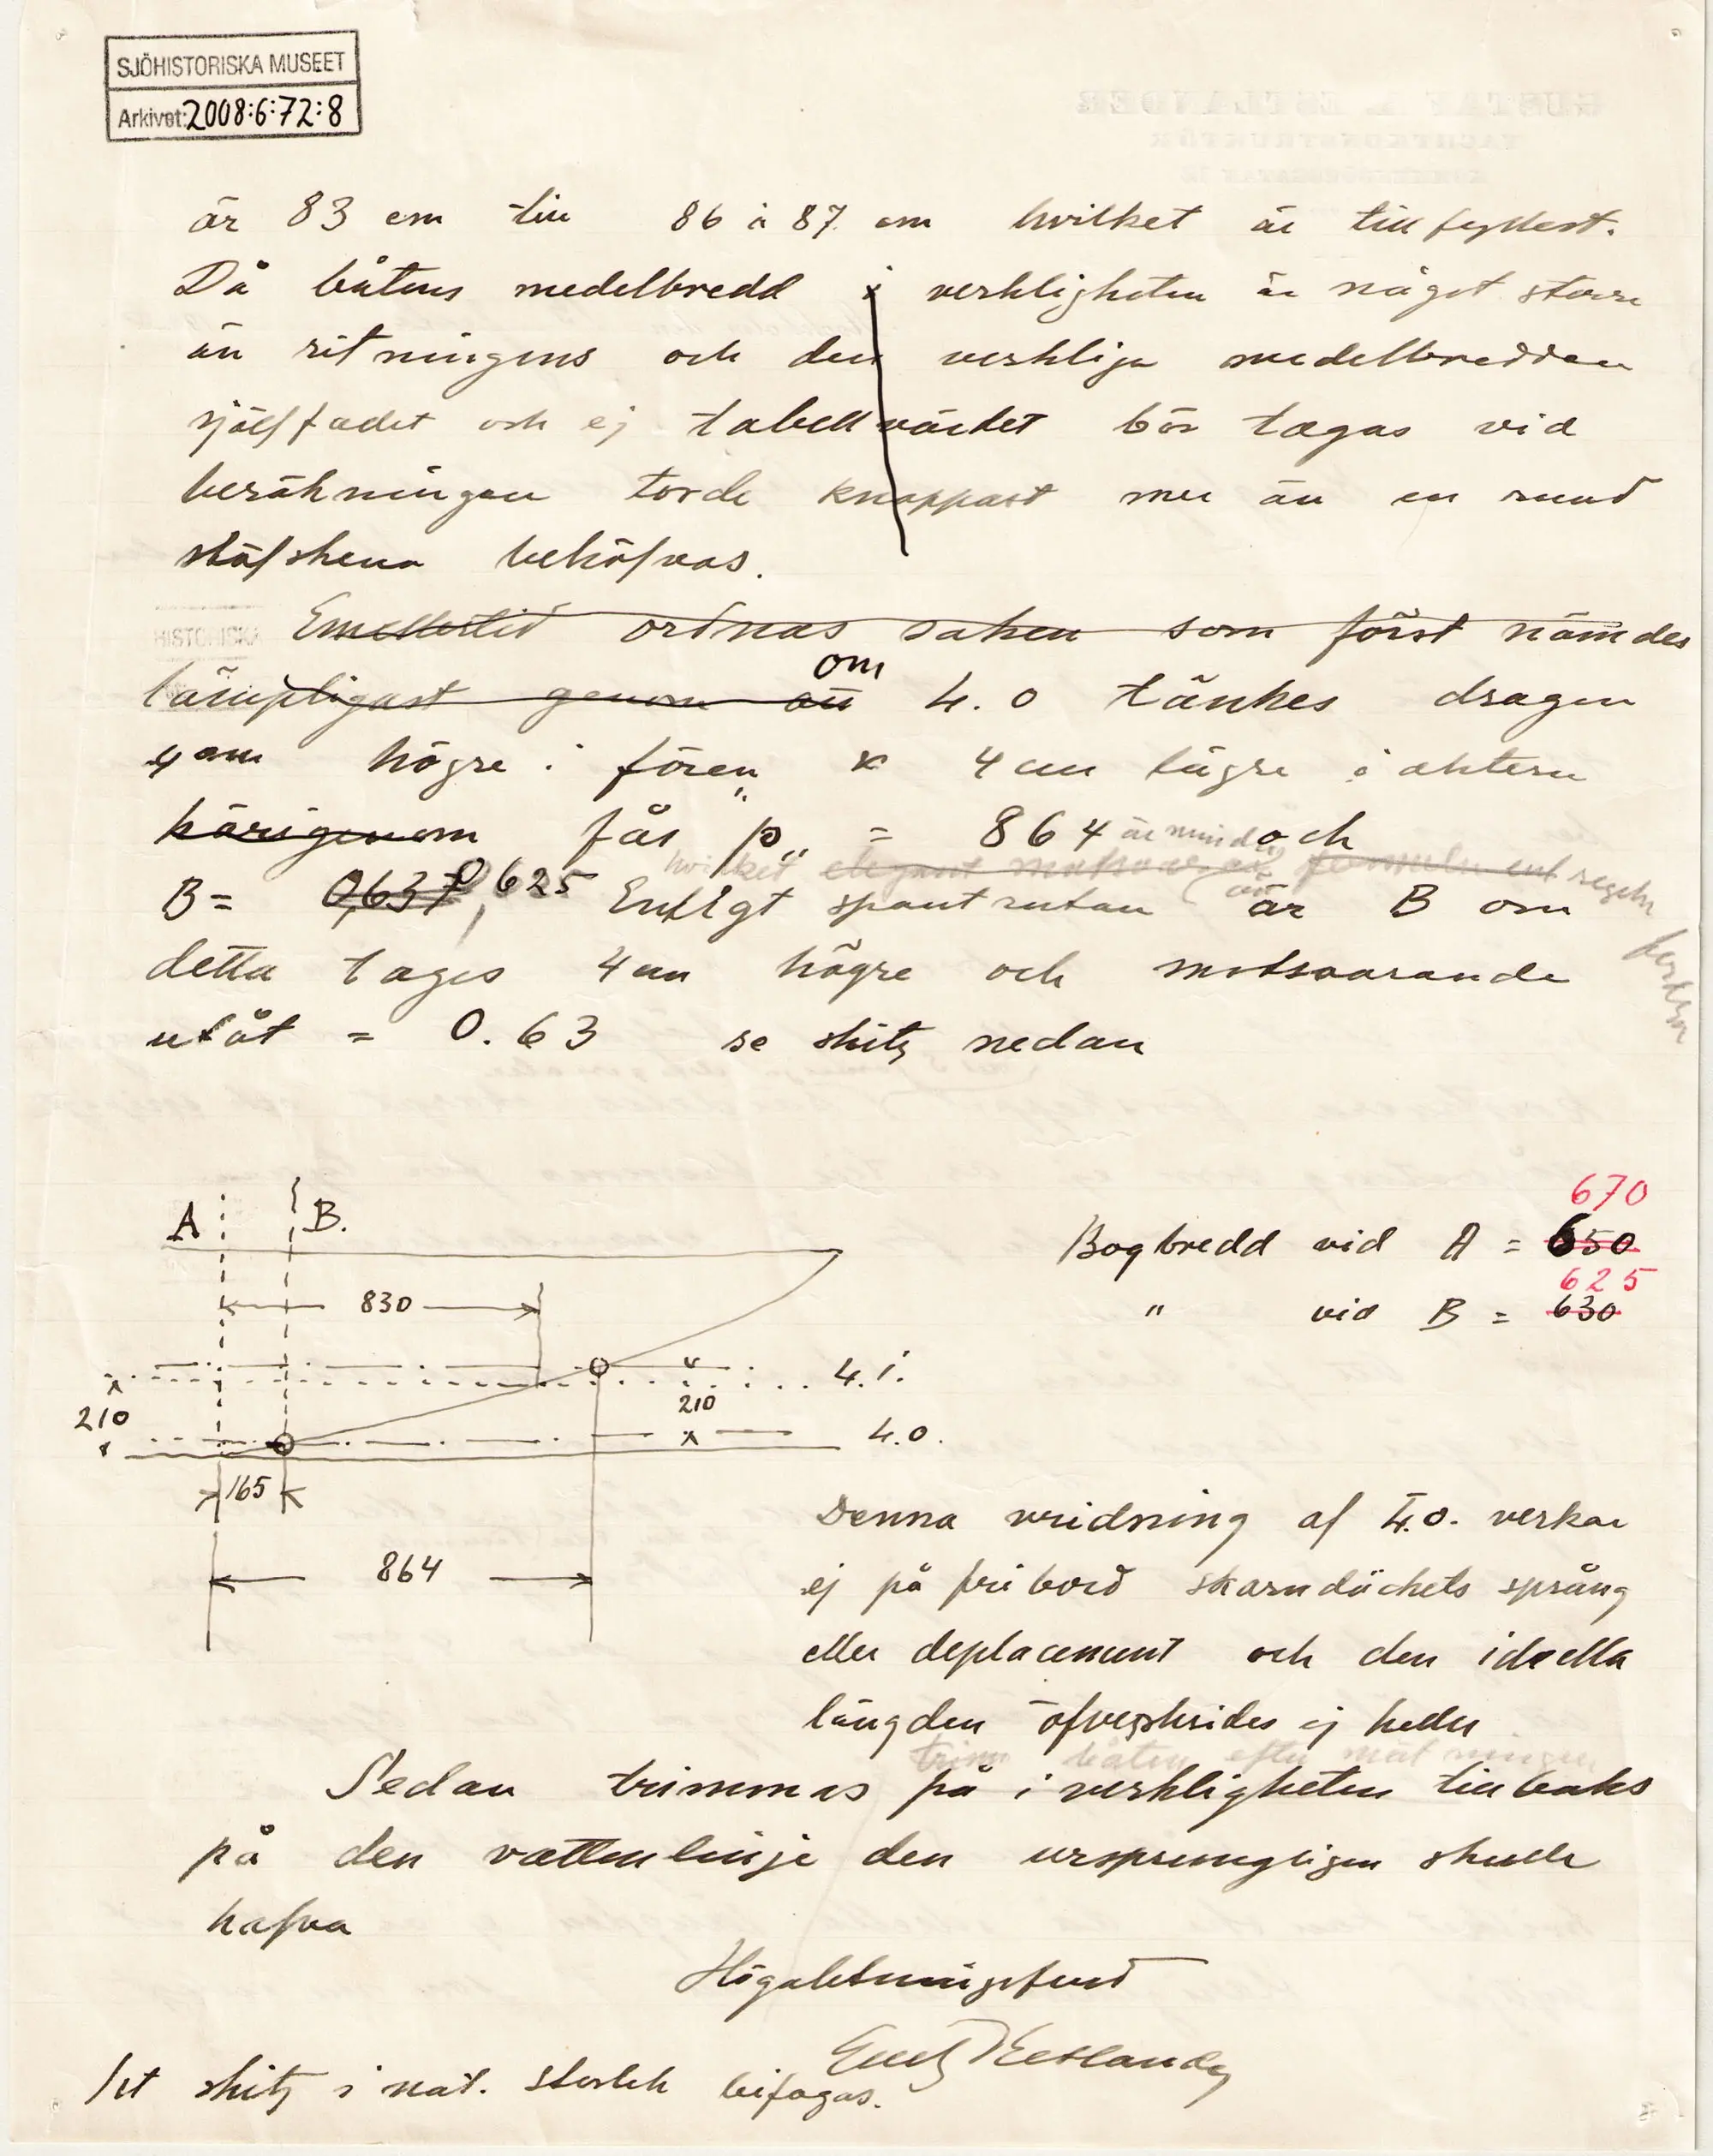 SJÖHISTORISKA MUSEET
Arkivet: 2008:6:72:8
GUSTAF A. ESTLANDER
YACHTKONSTRUKTÖR
är 83 cm till 86 à 87 cm hvilket är till fyllest.
Då båtens medelbredd i verkligheten är något större
än ritningens och den verkliga medelbredden
själffadet och ej tabellvärdet bör tagas vid
beräkningen torde knappast mer än en rund
stäfskena behöfvas.
HISTORISKA
Emellertid ordnas saken som först nämdes
lämpligast genom att om 4.0 tänkes dragen
4 cm högre i fören & 4 cm lägre i aktern
härigenom fås "p" = 864 är mindre och
hvilket elegant formeln ent regeln
B = 0,637 0,625 Enligt spantrutan är B om
fordrar
detta tages 4 cm högre och motsvarande
utåt = 0.63 se skitz nedan
A B.
830
4.1.
210
210
4.0.
165
864
670
Bogbredd vid A = 650
625
" vid B = 630
Denna vridning af 4.0. verkar
ej på fribord skarndäckets språng
eller deplacement och den ideella
längden öfverskrides ej heller
trim båten efter mätningen
Sedan trimmas på i verkligheten tillbaks
på den vattenlinje den ursprungligen skulle
hafva
Högaktningsfullt
Gust Estlander
1 st skitz i nat. storlek bifogas.